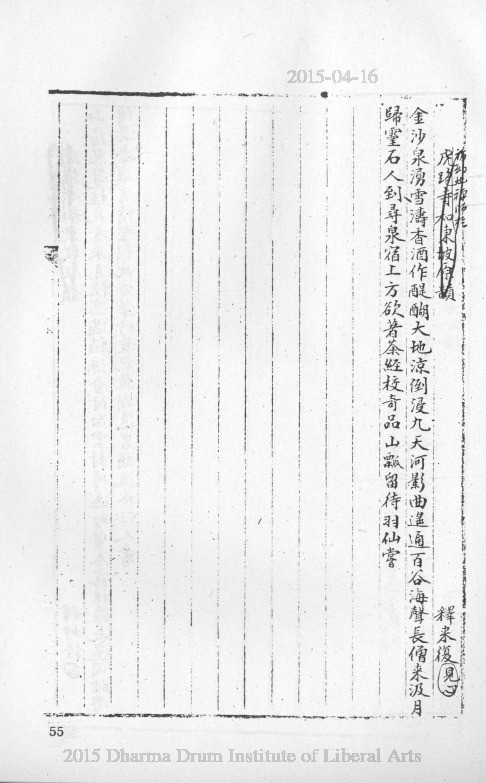 2015-04-16
虎跑寺和東坡原韻
釋来復見心
金沙泉湧雪濤香酒作醍醐大地涼倒浸九天河影曲遙通百谷海聲長僧来汲月
歸靈石人到尋泉宿上方欲著茶經校奇品山瓢留待羽仙嘗
55
2015 Dharma Drum Institute of Liberal Arts